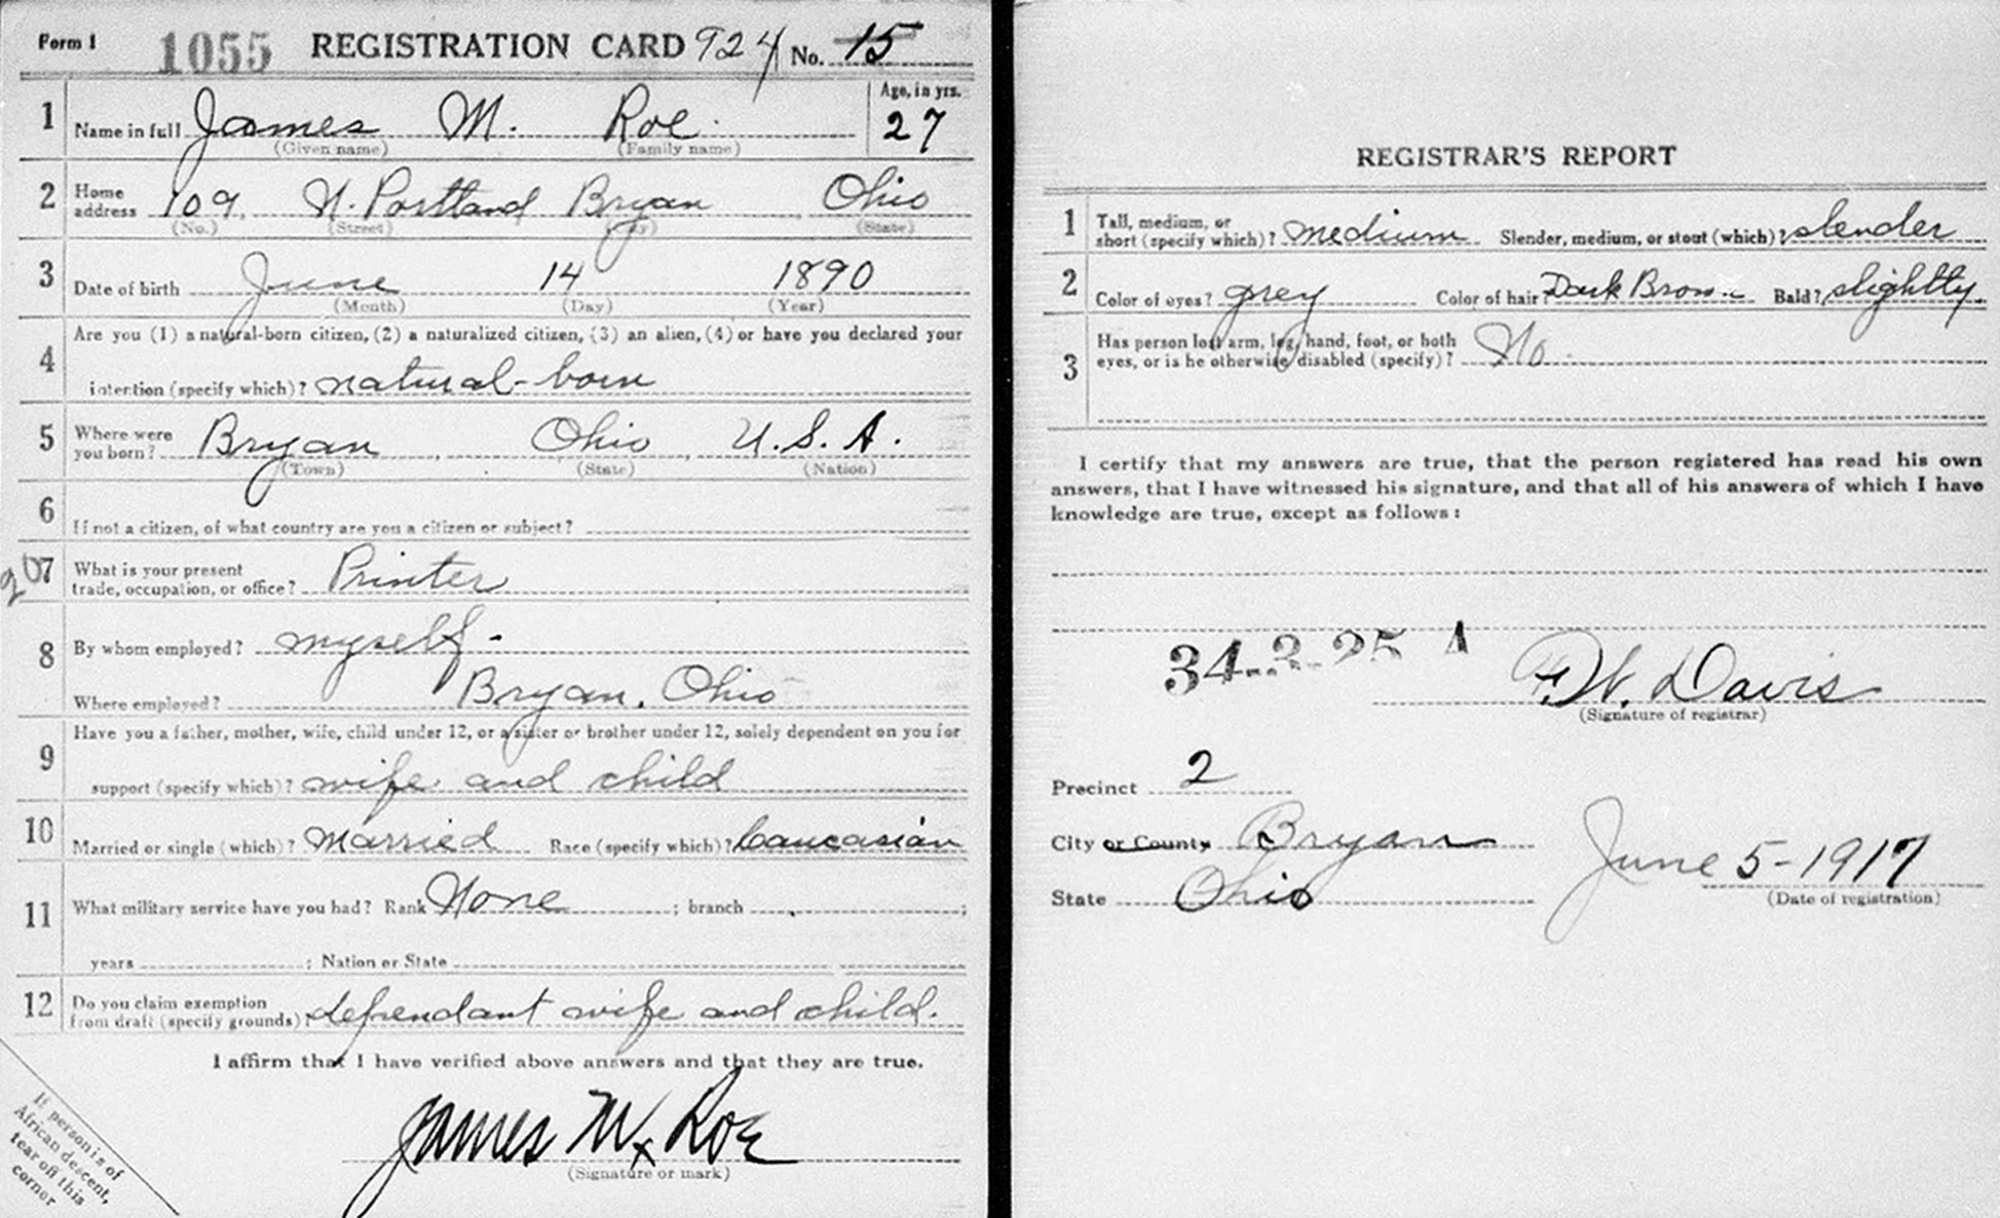 Form 1 1055 REGISTRATION CARD 924 No. 15
1 Name in full James M. Roe. Age, in yrs. 27
(Given name) (Family name)
2 Home address 109 N. Portland Bryan Ohio
(No.) (Street) (City) (State)
3 Date of birth June 14 1890
(Month) (Day) (Year)
4 Are you (1) a natural-born citizen, (2) a naturalized citizen, (3) an alien, (4) or have you declared your
intention (specify which)? natural-born
5 Where were you born? Bryan, Ohio, U.S.A.
(Town) (State) (Nation)
6 If not a citizen, of what country are you a citizen or subject?
207 What is your present
trade, occupation, or office? Printer
8 By whom employed? myself.
Where employed? Bryan, Ohio
9 Have you a father, mother, wife, child under 12, or a sister or brother under 12, solely dependent on you for
support (specify which)? wife and child
10 Married or single (which)? Married Race (specify which)? Caucasian
11 What military service have you had? Rank None ; branch ;
years ; Nation or State
12 Do you claim exemption
from draft (specify grounds)? dependant wife and child.
I affirm that I have verified above answers and that they are true.
James M. Roe
x
(Signature or mark)
If person is of
African descent,
tear off this
corner
REGISTRAR'S REPORT
1 Tall, medium, or
short (specify which)? medium Slender, medium, or stout (which)? slender
2 Color of eyes? grey Color of hair? Dark Brown Bald? slightly
3 Has person lost arm, leg, hand, foot, or both
eyes, or is he otherwise disabled (specify)? No.
I certify that my answers are true, that the person registered has read his own
answers, that I have witnessed his signature, and that all of his answers of which I have
knowledge are true, except as follows:
34-3-25 A
F.W. Davis
(Signature of registrar)
Precinct 2
City or County Bryan
State Ohio
June 5-1917
(Date of registration)